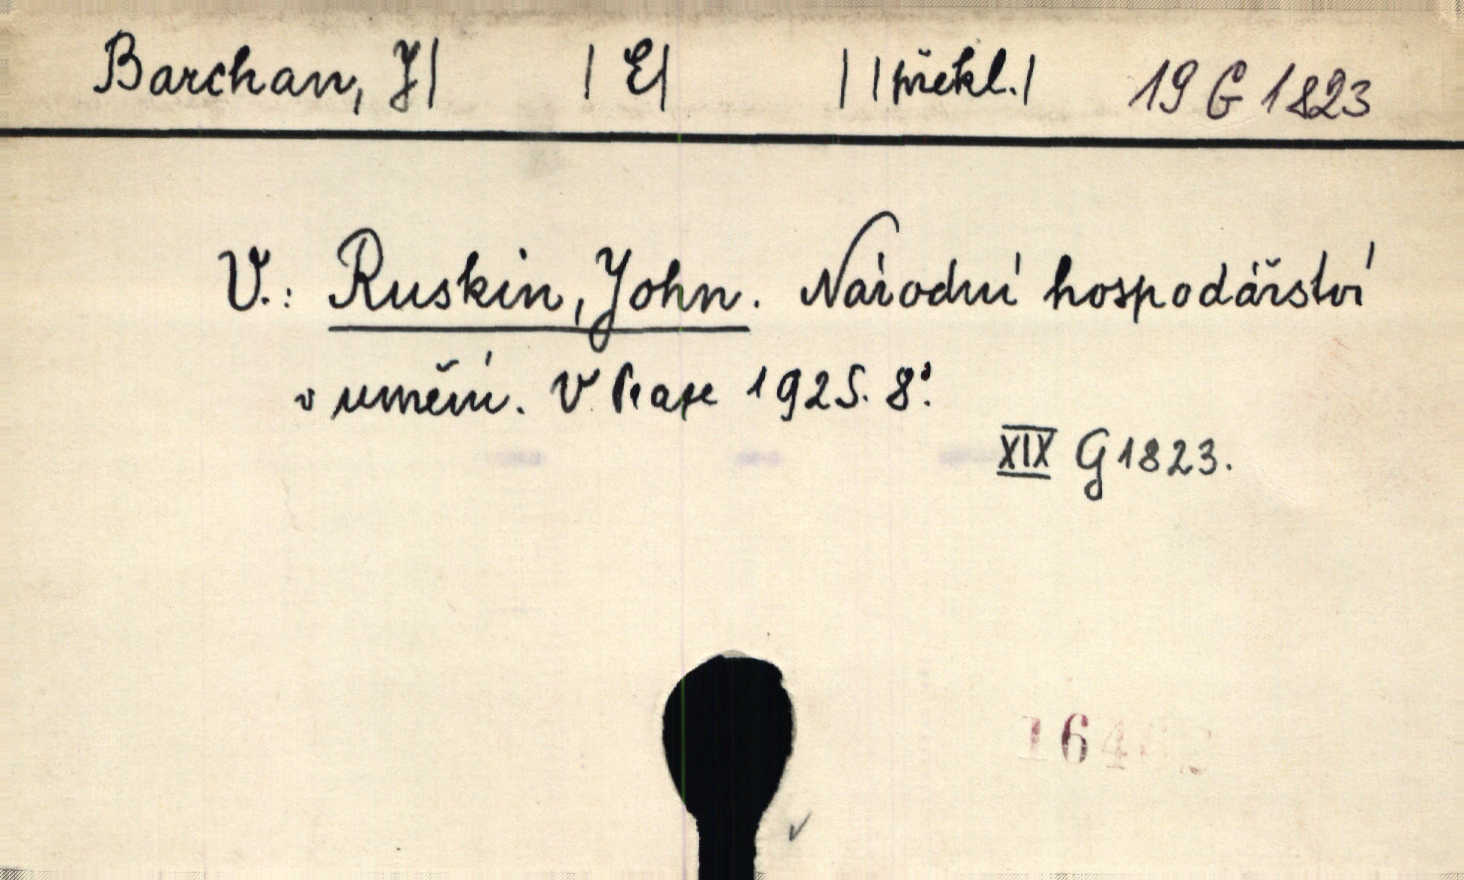 Barchan, J| | E| | |překl.| 19 G 1823
V.: Ruskin, John. Národní hospodářství
v umění. V Praze 1925. 8°.
XIX G 1823.